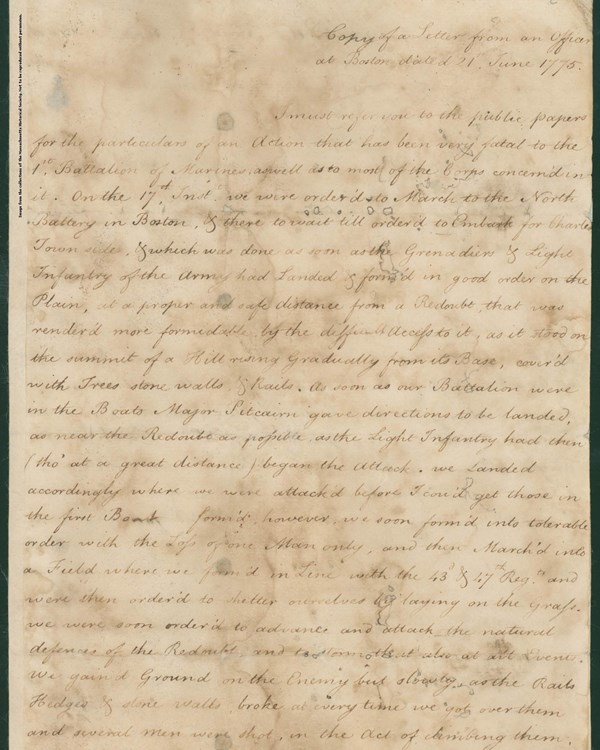 Image from the collections of the Massachusetts Historical Society. Not to be reproduced without permission.
Copy of a Letter from an Officer
at Boston dated 21st June 1775.
I must refer you to the public papers
for the particulars of an Action that has been very fatal to the
1st Battalion of Marines as well as to most of the Corps concern'd in
it. On the 17th Inst. we were order'd to March to the North
Battery in Boston, & there to wait till order'd to Embark for Charles
Town side, & which was done as soon as the Grenadiers & Light
Infantry of the Army had Landed & form'd in good order on the
Plain, at a proper and safe distance from a Redoubt, that was
render'd more formidable by the difficult Access to it, as it stood on
the summit of a Hill rising Gradually from its Base, cover'd
with Trees stone walls, & Rails. As soon as our Battalion were
in the Boats Major Pitcairn gave directions to be landed,
as near the Redoubt as possible, as the Light Infantry had then
(tho' at a great distance) began the Attack. we Landed
accordingly where we were attack'd before I cou'd get those in
the first Boat form'd, however, we soon form'd into tolerable
order with the Loss of one Man only, and then March'd into
a Field where we form'd in Line with the 43d & 47th Regts and
were then order'd to shelter ourselves by laying on the Grass.
we were soon order'd to advance and attack the natural
defences of the Redoubt, and to storm that also at all Events.
We gain'd Ground on the Enemy but slowly, as the Rails
Hedges & stone walls, broke at every time we got over them
and several men were shot, in the Act of climbing them,